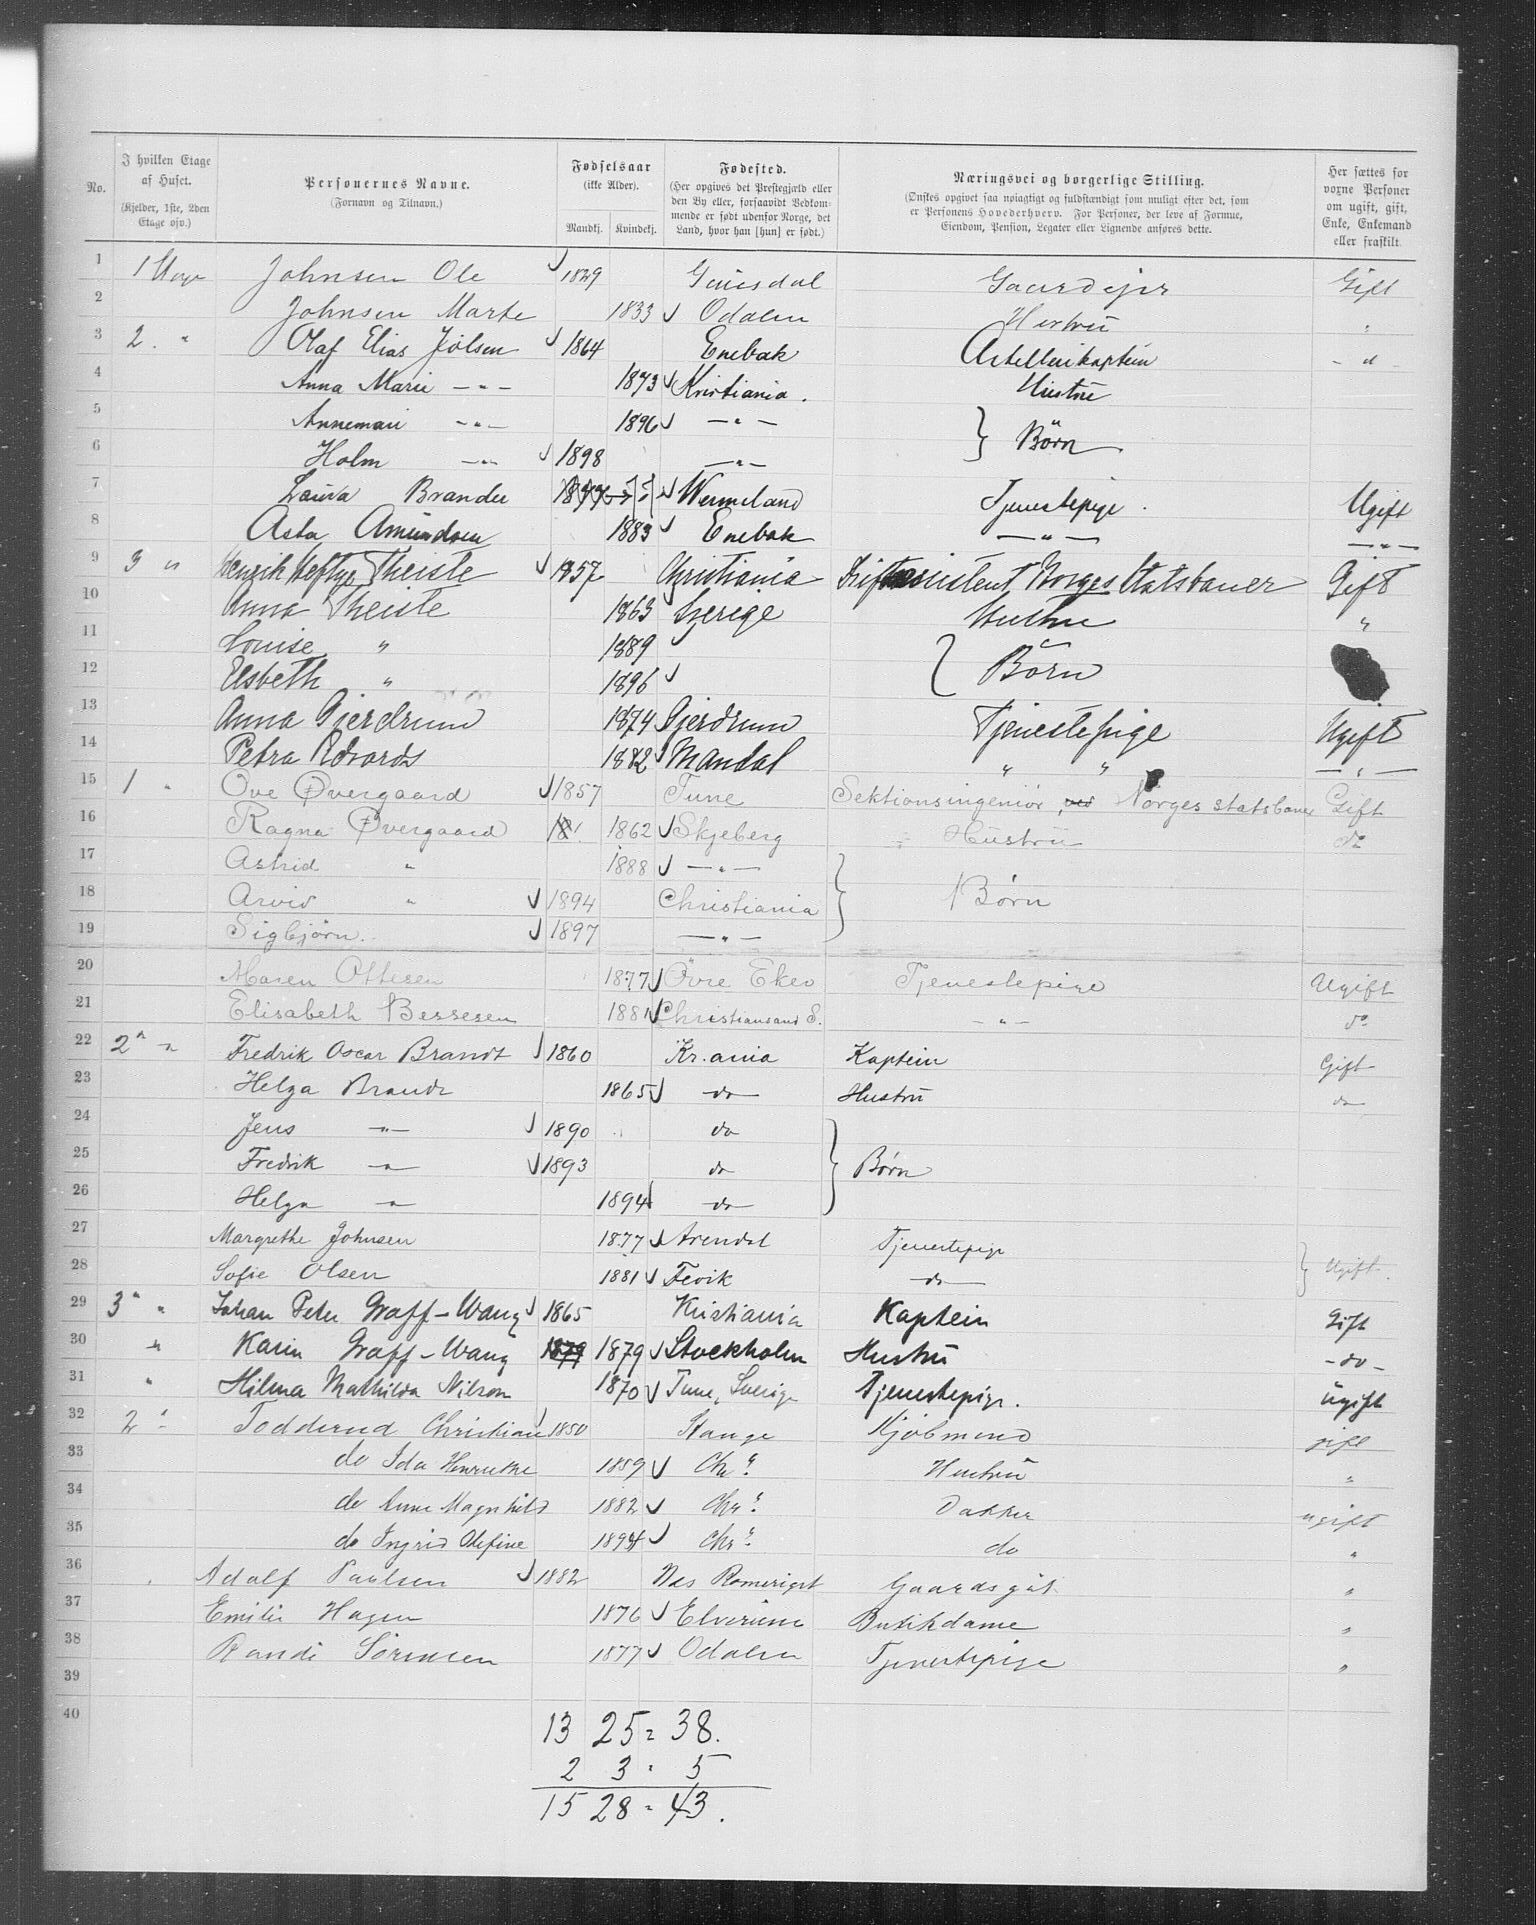 No. | I hvilken Etage af Huset. (Kjelder, 1ste, 2den Etage osv.) | Personernes Navne. (Fornavn og Tilnavn.) | Fødselsaar (ikke Alder). Mandkj. Kvindekj. | Fødested. (Her opgives det Prestegjæld eller den By eller, forsaavidt Vedkommende er født udenfor Norge, det Land, hvor han [hun] er født.) | Næringsvei og borgerlige Stilling. (Ønskes opgivet saa nøiagtigt og fuldstændigt som muligt efter det, som er Personens Hovederhverv. For Personer, der leve af Formue, Eiendom, Pension, Legater eller Lignende anføres dette. | Her sættes for voxne Personer om ugift, gift, Enke, Enkemand eller fraskilt.
1 | 1 | Johnsen Ole | 1829 | Gausdal | Gaardejer | Gift
2 | Johnsen Marte | 1833 | Odalen | Hustru | "
3 | 2. " | Olaf Elias Jølsen | 1864 | Enebak | Artellerikaptein | – " –
4 | Anna Marie – " – | 1873 | Kristiania. | Hustru
5 | Annemari – " – | 1896 | – " –
6 | Holm – " – | 1898 | – " – | Børn
7 | Laura Brander | Wermeland | Tjenestepige. | Ugift
8 | Asta Amundsen | 1883 | Enebak | – " – | – " –
9 | 3 " | Henrik Heftye Theiste | 1857 | Christiania | Driftsassistent, Norges Statsbaner | Gift
10 | Anna Theiste | 1863 | Sverige | Hustru | "
11 | Louise " | 1889
12 | Elsbeth " | 1896 | Børn
13 | Anna Gjerdrum | 1874 | Gjerdrum | Tjenestepige | Ugift
14 | Petra Edvards | 1882 | Mandal | " " | – " –
15 | 1 " | Ove Øvergaard | 1857 | Tune | Sektionsingeniør, ved Norges statsbaner | Gift
16 | Ragna Øvergaard | 18 | 1862 | Skjeberg | Hustru | do
17 | Astrid " | 1888 | – " –
18 | Arvid " | 1894 | Christiania | Børn
19 | Sigbjørn. | 1897 | – " –
20 | Maren Ottesen | 1877 | Øvre Eker | Tjenestepige | Ugift
21 | Elisabeth Bessesen | 1881 | Christiansand S. | – " – | do
22 | 2 " | Fredrik Oscar Brandt | 1860 | Kr.ania | Kaptein | Gift
23 | Helga Brandt | 1865 | do | Hustru | do
24 | Jens – " – | 1890 | do
25 | Fredrik – " – | 1893 | do | Børn
26 | Helga – " – | 1894 | do
27 | Margrethe Johnsen | 1877 | Arendal | Tjenestepige
28 | Sofie Olsen | 1881 | Fevik | do | Ugift.
29 | 3 " " | Johan Peter Graff-Wang | 1865 | Kristiania | Kaptein | Gift
30 | " | Karin Graff-Wang | 1879 | 1879 | Stockholm | Hustru | – do –
31 | " | Hilma Mathilda Nilson | 1870 | Tune, Sverige | Tjenestepige. | ugift
32 | 2 " | Todderud Christian | 1850 | Stange | Kjøbmand | gift
33 | do Ida Henrikke | 1859 | Chr. | Hustru | "
34 | do Anne Magnhild | 1882 | Chr. | Datter | ugift
35 | do Ingrid Olefine | 1894 | Chr. | do | "
36 | Adolf Paulsen | 1882 | Nes Romeriget | Gaardsgut | "
37 | Emilie Hagen | 1876 | Elverum | Butikdame | "
38 | Randi Sørensen | 1877 | Odalen | Tjenestepige | "
39
40
13 25 = 38.
2 3 = 5
15 28 = 43.